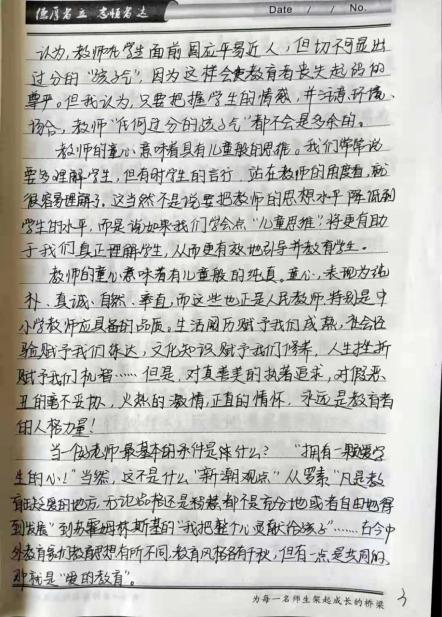 德厚者立 志恒者达
Date / / No.
认为,教师在学生面前固应平易近人,但切不可显出
过分的“孩子气”,因为这样会使教育者丧失起码的
尊严。但我认为,只要把握学生的情感,并注意环境、
场合,教师“任何过分的孩子气”都不会是多余的。
教师的童心意味着具有儿童般的思维。我们常常说
要多理解学生,但有时学生的言行,站在教师的角度看,就
很容易理解了。这当然不是说要把教师的思想水平降低到
学生的水平,而是说如果我们学会点“儿童思维”,将更有助
于我们真正理解学生,从而更有效地引导并教育学生。
教师的童心意味着有儿童般的纯真。童心,表现为纯
朴、真诚、自然、率直,而这些也正是人民教师,特别是中
小学教师应具备的品质。生活阅历赋予我们成熟,社会经
验赋予我们练达,文化知识赋予我们修养,人生挫折
赋予我们机智……但是,对真善美的执著追求,对假恶
丑的毫不妥协,火热的激情,正直的情怀,永远是教育者
的人格力量!
当一个好老师最基本的条件是什么?“拥有一颗爱学
生的心!”当然,这不是什么“新潮观点”从罗素“凡是教
育缺爱的地方,无论品格还是智慧都不是充分地或者自由地得
到发展”到苏霍姆林斯基的“我把整个心灵献给孩子”……古今中
外教育家们教育思想有所不同,教育风格各有千秋,但有一点是共同的,
那就是“爱的教育”。
为每一名师生架起成长的桥梁
3